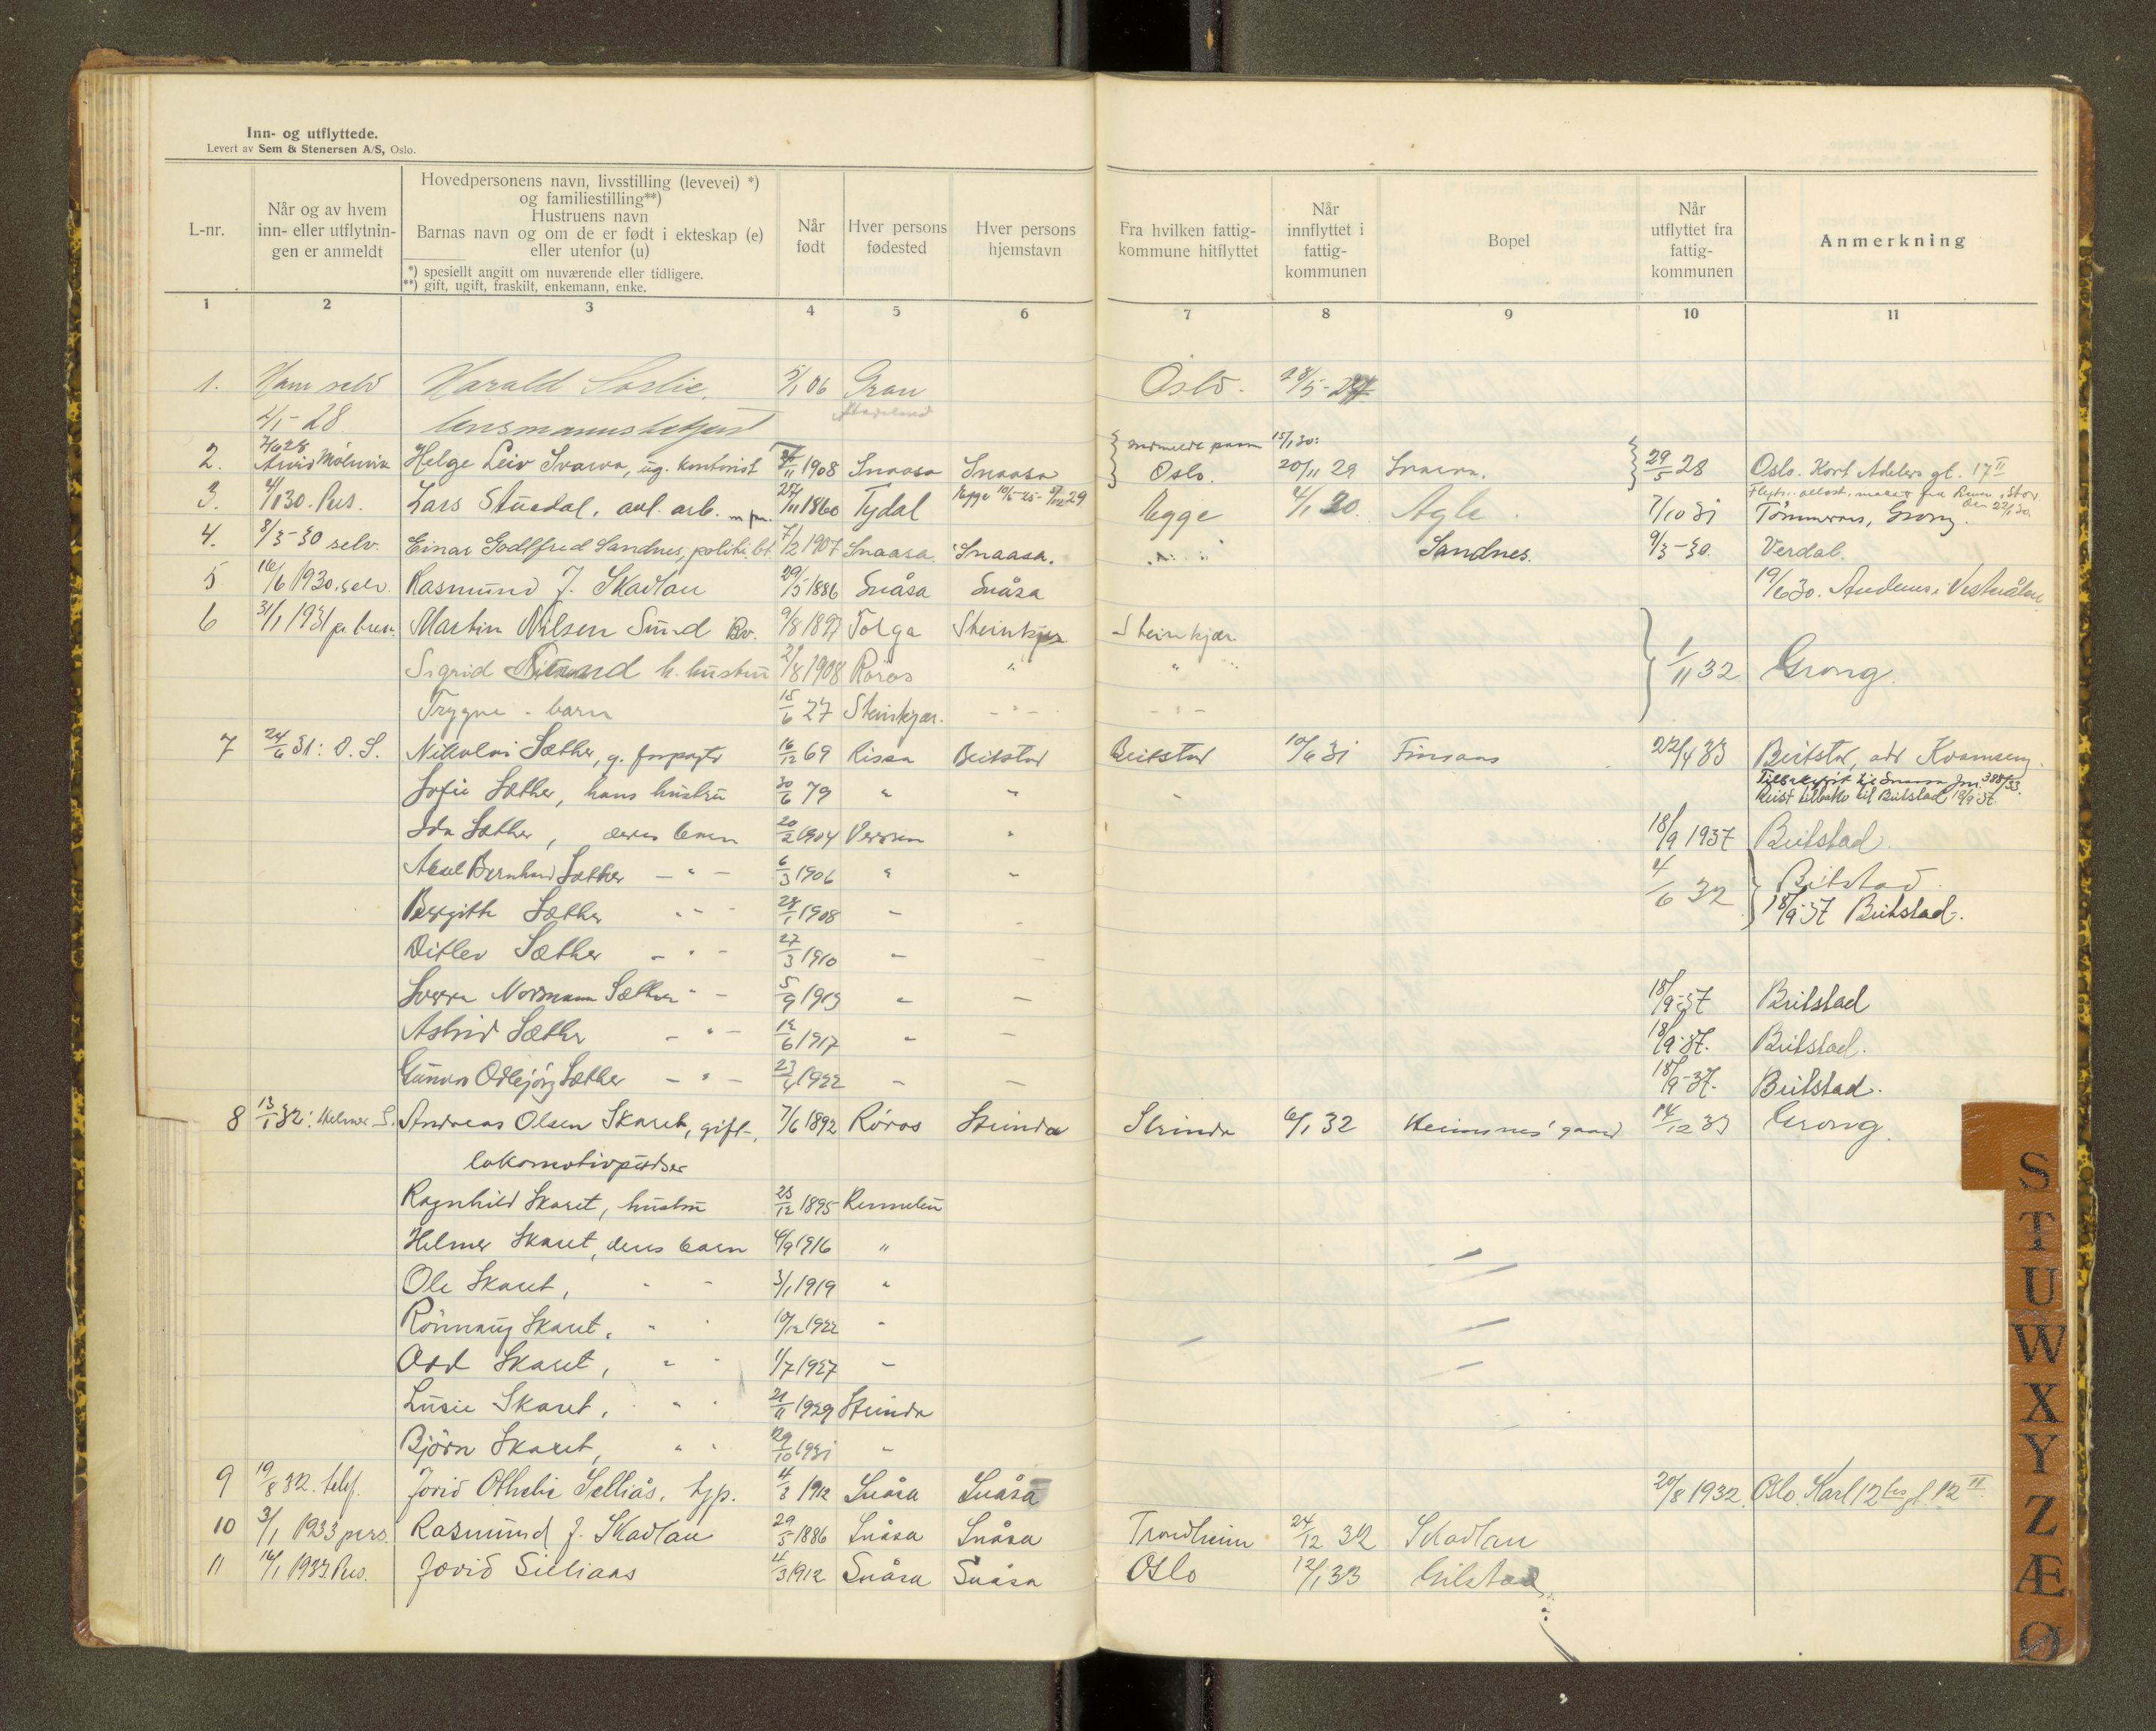 Inn- og utflyttede.
Levert av Sem & Stenersen A/S, Oslo.
L-nr.
Når og av hvem
inn- eller utflytnin-
gen er anmeldt
Hovedpersonens navn, livsstilling (levevei) *)
og familiestilling**)
Hustruens navn
Barnas navn og om de er født i ekteskap (e)
eller utenfor (u)
*) spesiellt angitt om nuværende eller tidligere.
**) gift, ugift, fraskilt, enkemann, enke.
Når
født
Hver persons
fødested
Hver persons
hjemstavn
Fra hvilken fattig-
kommune hitflyttet
Når
innflyttet i
fattig-
kommunen
Bopel
Når
utflyttet fra
fattig-
kommunen
Anmerkning
1 2 3 4 5 6 7 8 9 10 11
1. Ham selv Harald Sorlie. 5/1 06 Gran Oslo. 28/5-27
2/1-28 lensmannsbetjent Hadeland
2. 7/6 28 Arvid Mølnvik Helge Leiv Svarva, ug. kontorist 1908 Snaasa Snaasa Oslo. 20/11 29 29/5 28 Oslo. Kort Adelers gt. 17 II
15/1 30:
3. 4/1 30. Pers. Lars Stuedal, anl. arb. 25/11 1860 Tydal Egge 29 Egge 4/1 30. Agle. 7/10 31 Tømmeraas, Grong.
4. 8/3-30 selv. Einar Godtfred Sandnes, politibt. 7/2 1907 Snaasa Snaasa. Sandnes. 9/3-30. Verdal.
5 16/6 1930. selv. Rasmund J. Skavlan 29/5 1886 Snåsa Snåsa 19/6 30. Andenes i Vesterålen
6 31/1 1931 pr. brev. Martin Nilsen Sund Bv. 9/8 1897 Tolga Steinkjer Steinkjær
Sigrid Sund h. hustru 21/8 1908 Røros " " 1/11 32 Grong.
Trygve - barn 15/6 27 Steinkjær. - " - - " -
7 24/6 31: O. S. Nikolai Sæther, g. forpagter 16/12 69 Rissa Beitstad Beitstad 10/6 31 Finsaas 22/4 33 Beitstad, adr Kvamseng.
Tilbakeflyt til Snaasa Jnr. 388/33.
Reist tilbake til Beitstad 18/9-37.
Sofie Sæther, hans hustru 30/6 79 " " -
Ida Sæther, deres barn 20/2 1904 Verran " 18/9 1937 Beitstad.
Aksel Bernhard Sæther - " - 6/3 1906 " " 4/6 32 Beitstad.
Bergith Sæther - " - 28/1 1908 - - 18/9-37 Beitstad.
Ditlev Sæther - " - 27/3 1910 - -
Sverre Normann Sæther " - 5/9 1913 - - 18/9-37 Beitstad
Astrid Sæther - " - 12/6 1917 - - 18/9-37. Beitstad.
Gunvor Odbjørg Sæther - " - 23/4 1922 - - 18/9-37. Beitstad.
8 13/1 32: Helmer S. Andreas Olsen Skaret, gift, 7/6 1892 Røros Strinda Strinda 6/1 32 Heimsnes' gaard 14/12 33 Grong.
lokomotivpudser
Ragnhild Skaret, hustru 23/12 1895 Rennebu
Helmer Skaret, deres barn 4/9 1916 "
Ole Skaret, " - 3/1 1919 "
Rønnaug Skaret, " " 10/12 1922 "
Odd Skaret, " " 1/7 1927 -
Lusie Skaret, " " 21/11 1929 Strinda
Bjørn Skaret, " " 29/10 1931 -
9 19/8 32. telf. Jovid Othelie Selliås, tjp. 4/3 1912 Snåsa Snåsa 20/8 1932. Oslo. Karl 12tes gt. 12 II
10 3/1 1933 pers. Rasmund J. Skavlan 29/5 1886 Snåsa Snåsa Trondheim 24/12 32 Skavlan
11 16/1 1933. Pers. Jovid Sieliaas 4/3 1912 Snåsa Snåsa Oslo 12/1 33 Gilstad
S
T
U
W
X
Y
Z
Æ
Ø